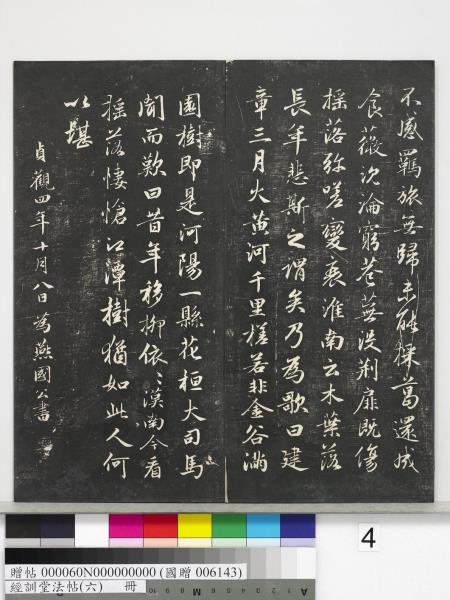 不感羈旅無歸未能採葛還成
食薇沉淪窮巷蕪沒荊扉既傷
搖落弥嗟變衰淮南云木葉落
長年悲斯之謂矣乃為歌曰建
章三月火黃河千里槎若非金谷滿
園樹即是河陽一縣花桓大司馬
聞而歎曰昔年移柳依〻漢南今看
搖落悽愴江潭樹猶如此人何
以堪
貞觀四年十月八日為燕國公書
4
贈帖 000060N000000000 (國贈 006143)
經訓堂法帖(六) 冊